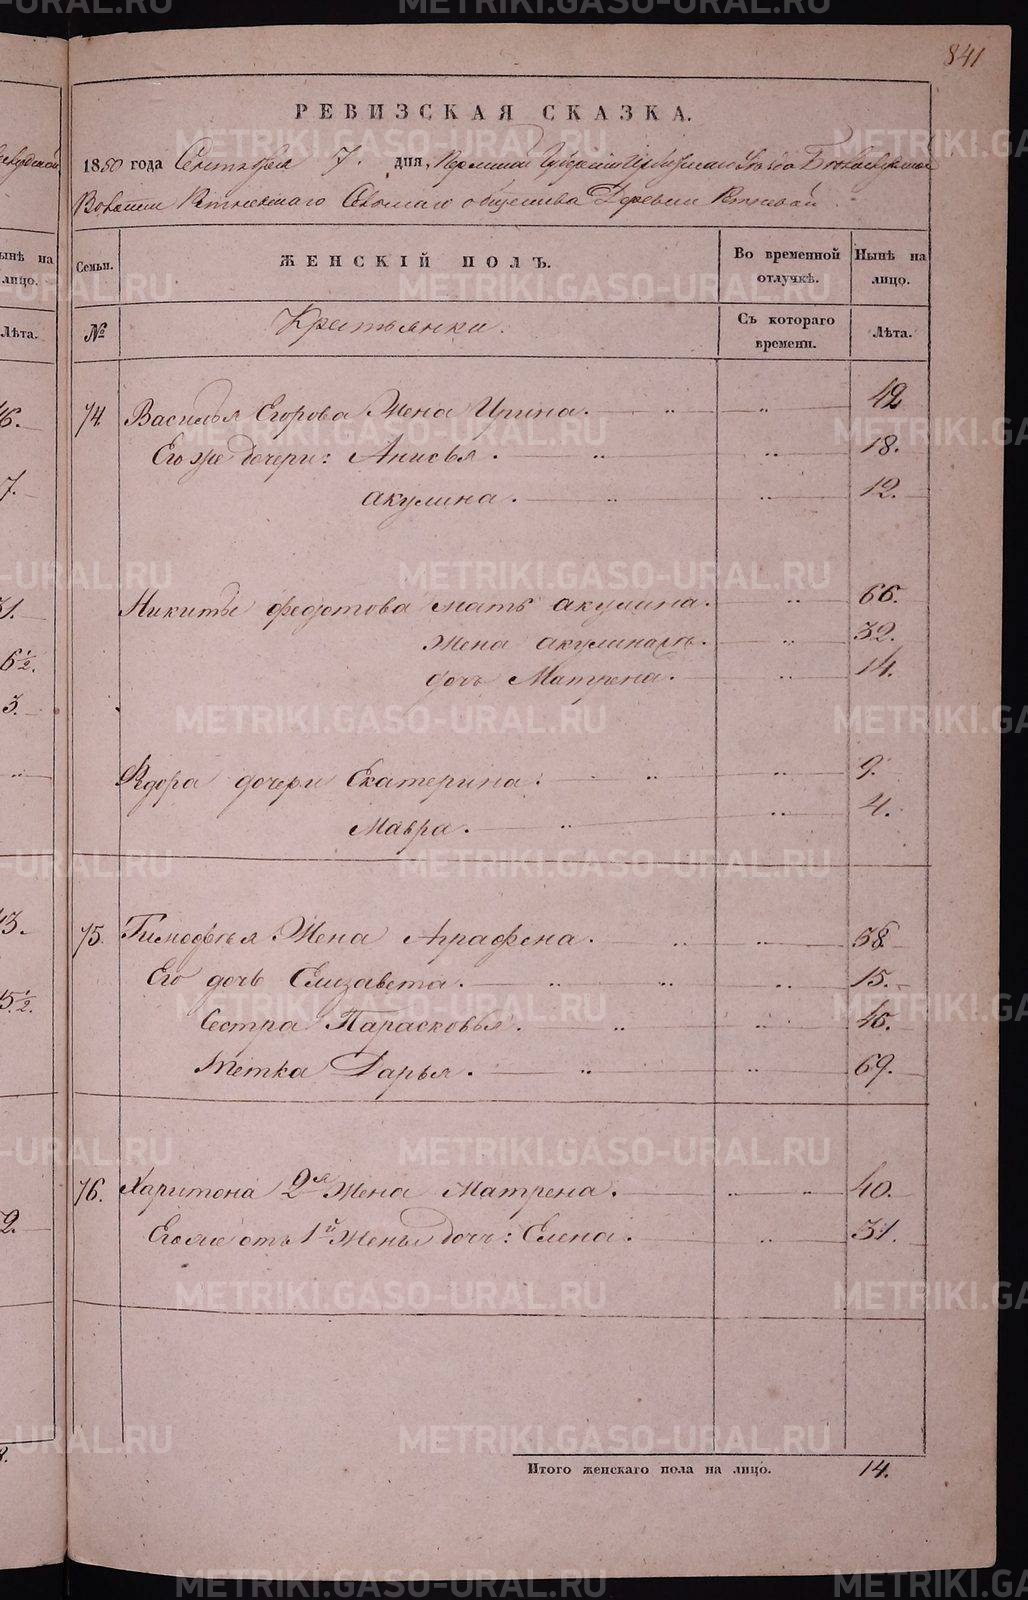 841
РЕВИЗСКАЯ СКАЗКА.
1850 года Сентября 7. дня, Пермской Губернии Ирбитскаго Уѣзда
Волости Сельскаго общества Деревни
Семьи. ЖЕНСКІЙ ПОЛЪ. Во временной отлучкѣ. Нынѣ на лицо.
№ Крестьянки. Съ котораго времени. Лѣта.
74. Василья Егорова Жена Ирина. 42
Его же дочери: Анисья. 18.
акулина. 12.
Никиты федотова мать акулина. 66.
Жена акулинаж. 32.
дочь Матрена. 14.
дочери Екатерина. 9.
Мавра. 4.
75. Тимофѣя Жена Аграфена. 58
Его дочь Елизавета. 15.
Сестра Парасковья. 45.
тетка Дарья. 69.
76. Харитона 2я Жена Матрена. 40.
Егоже отъ 1й Жены дочь: Елена. 31.
Итого женскаго пола на лицо. 14.
ынѣ на
лицо.
Лѣта.
7.
31.
6½.
3.
13.
5½.
2.
METRIKI.GASO-URAL.RU